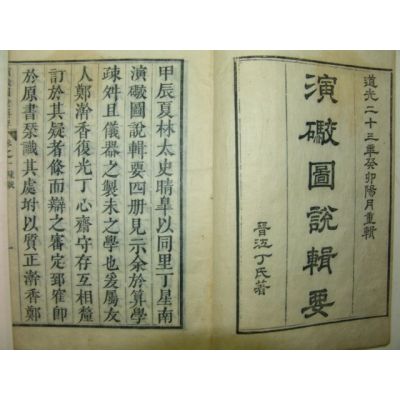 道光二十三年癸卯陽月重輯
演礮圖說輯要
晉江丁氏著
甲辰夏林太史晴皐以同里丁星南
演礮圖說輯要四册見示余於算學
疎舛且儀器之製未之學也爰屬友
人鄭澣香復光丁心齋守存互相釐
訂於其疑者條而辯之審定郅寉卽
於原書栞識其處坿以質正澣香鄭